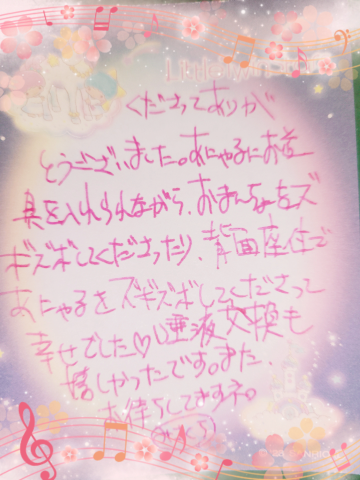 くださってありが
とうございました。あにゃるにお道
具を入れられながら、おまんちょをズ
ボズボしてくださったり、背面座位で
あにゃるをズボズボしてくださって
幸せでした♡唾液交換も
嬉しかったです。また、
お待ちしてますネ。